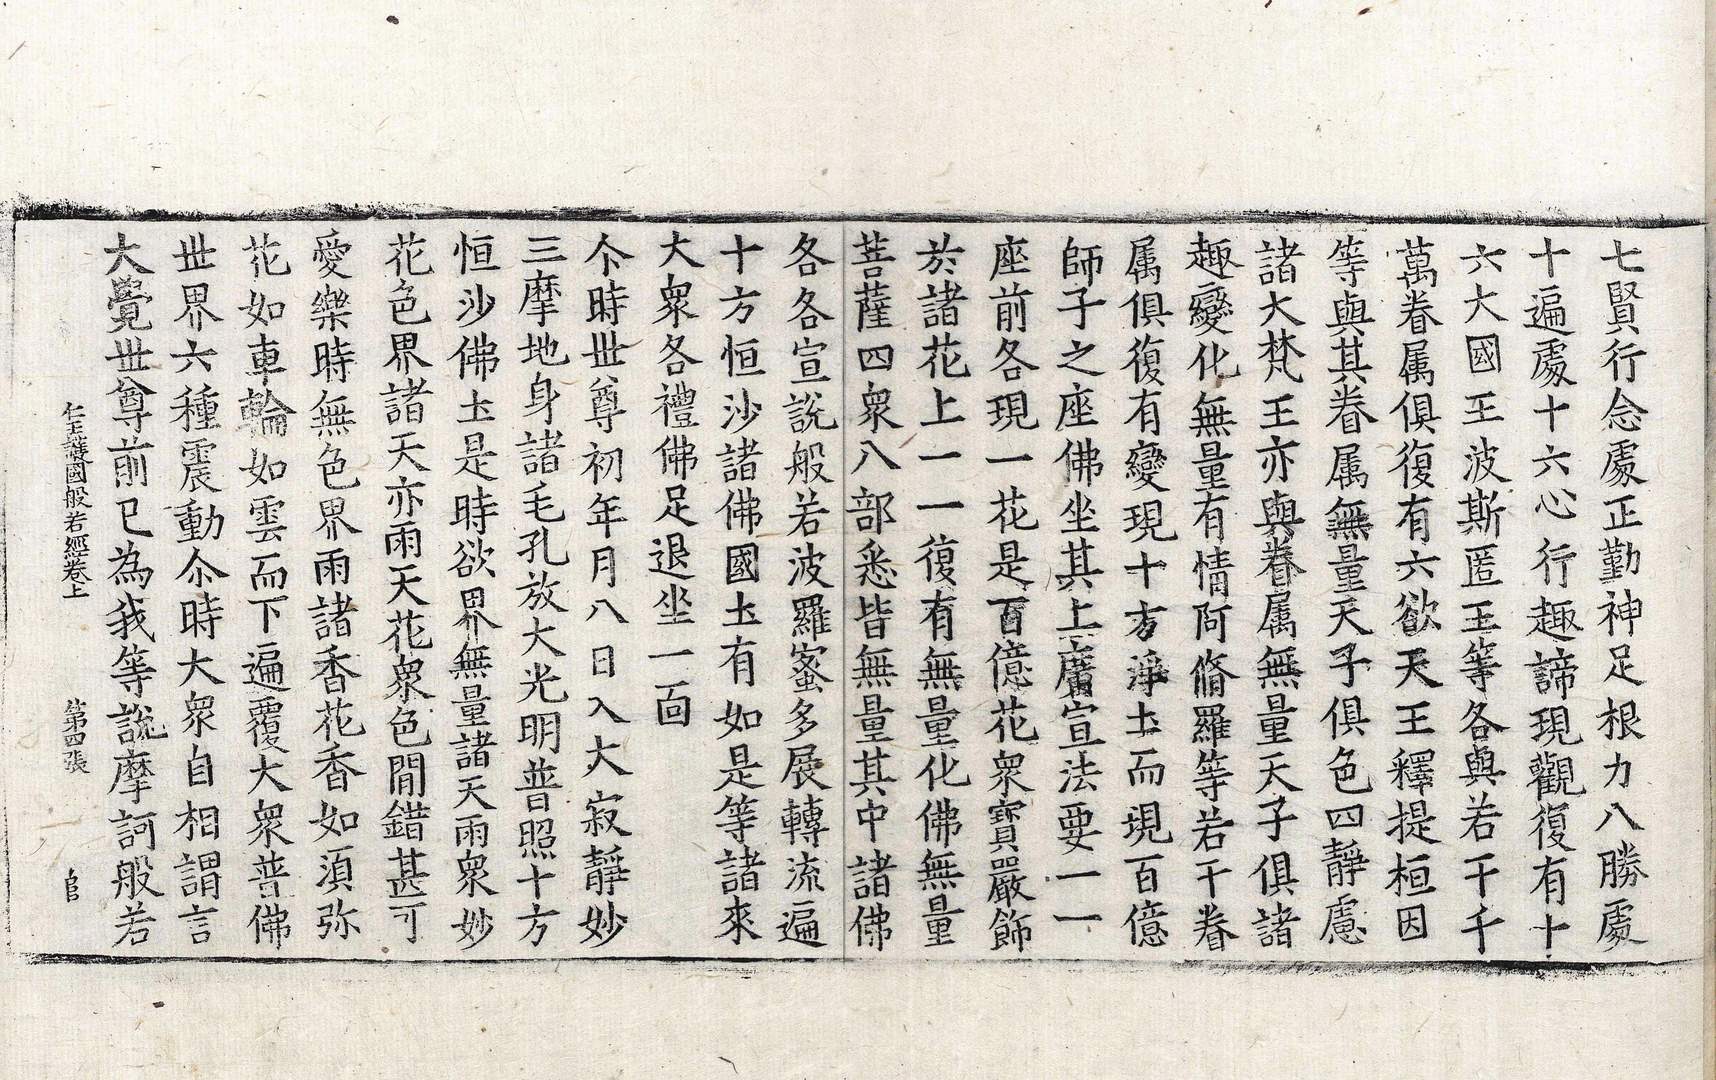 七賢行念處正勤神足根力八勝處
十遍處十六心行趣諦現觀復有十
六大國王波斯匿王等各與若干千
萬眷属俱復有六欲天王釋提桓因
等與其眷属無量天子俱色四靜慮
諸大梵王亦與眷属無量天子俱諸
趣變化無量有情阿脩羅等若干眷
属俱復有變現十方淨土而現百億
師子之座佛坐其上廣宣法要一一
座前各現一花是百億花衆寶嚴飾
於諸花上一一復有無量化佛無量
菩薩四衆八部悉皆無量其中諸佛
各各宣說般若波羅蜜多展轉流遍
十方恒沙諸佛國土有如是等諸來
大衆各禮佛足退坐一面
尒時世尊初年月八日入大寂靜妙
三摩地身諸毛孔放大光明普照十方
恒沙佛土是時欲界無量諸天雨衆妙
花色界諸天亦雨天花衆色閒錯甚可
愛樂時無色界雨諸香花香如須弥
花如車輪如雲而下遍覆大衆普佛
世界六種震動尒時大衆自相謂言
大覺世尊前已為我等說摩訶般若
仁王護國般若經卷上 第四張 官